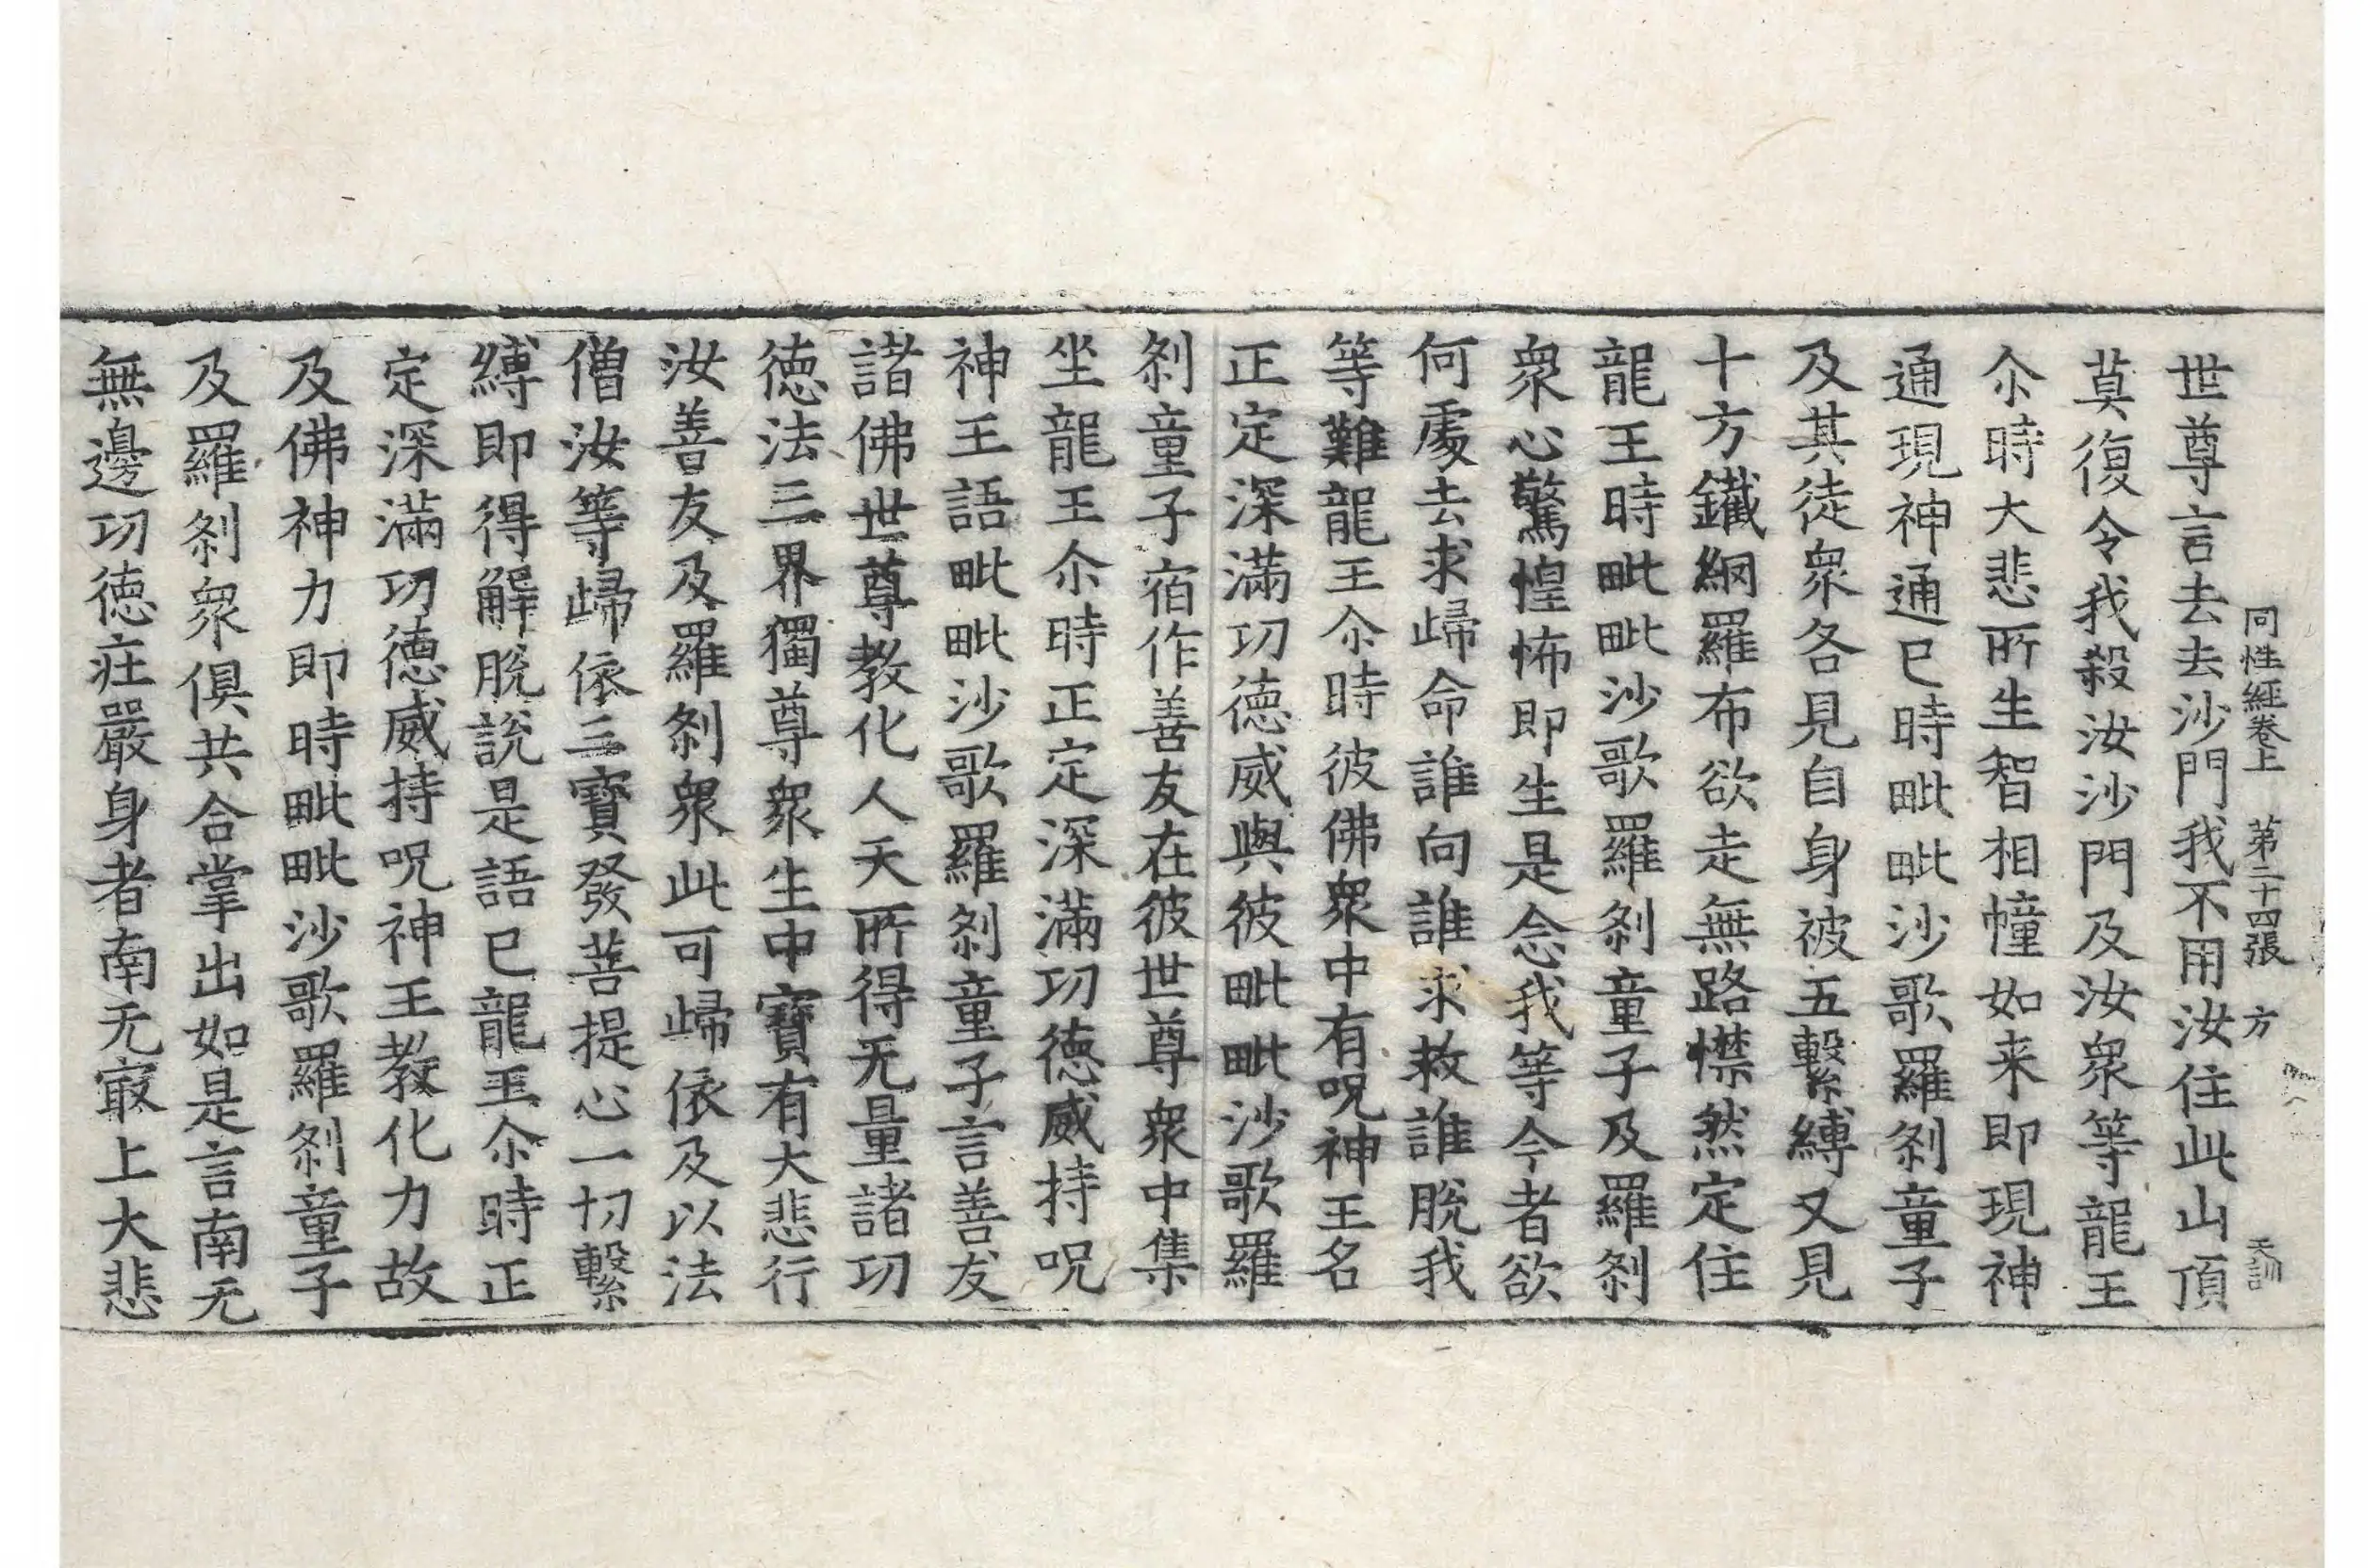 同性經卷上 第二十四張 方 天訓
世尊言去去沙門我不用汝住此山頂
莫復令我殺汝沙門及汝衆等龍王
尒時大悲所生智相幢如来即現神
通現神通已時毗毗沙歌羅刹童子
及其徒衆各見自身被五繫縛又見
十方鐵網羅布欲走無路憷然定住
龍王時毗毗沙歌羅刹童子及羅刹
衆心驚惶怖即生是念我等今者欲
何處去求歸命誰向誰求救誰脫我
等難龍王尒時彼佛衆中有呪神王名
正定深滿功德威與彼毗毗沙歌羅
刹童子宿作善友在彼世尊衆中集
坐龍王尒時正定深滿功德威持呪
神王語毗毗沙歌羅刹童子言善友
諸佛世尊教化人天所得无量諸功
德法三界獨尊衆生中寶有大悲行
汝善友及羅刹衆此可歸依及以法
僧汝等歸依三寶發菩提心一切繫
縛即得解脫說是語已龍王尒時正
定深滿功德威持呪神王教化力故
及佛神力即時毗毗沙歌羅刹童子
及羅刹衆俱共合掌出如是言南无
無邊功德莊嚴身者南无寂上大悲